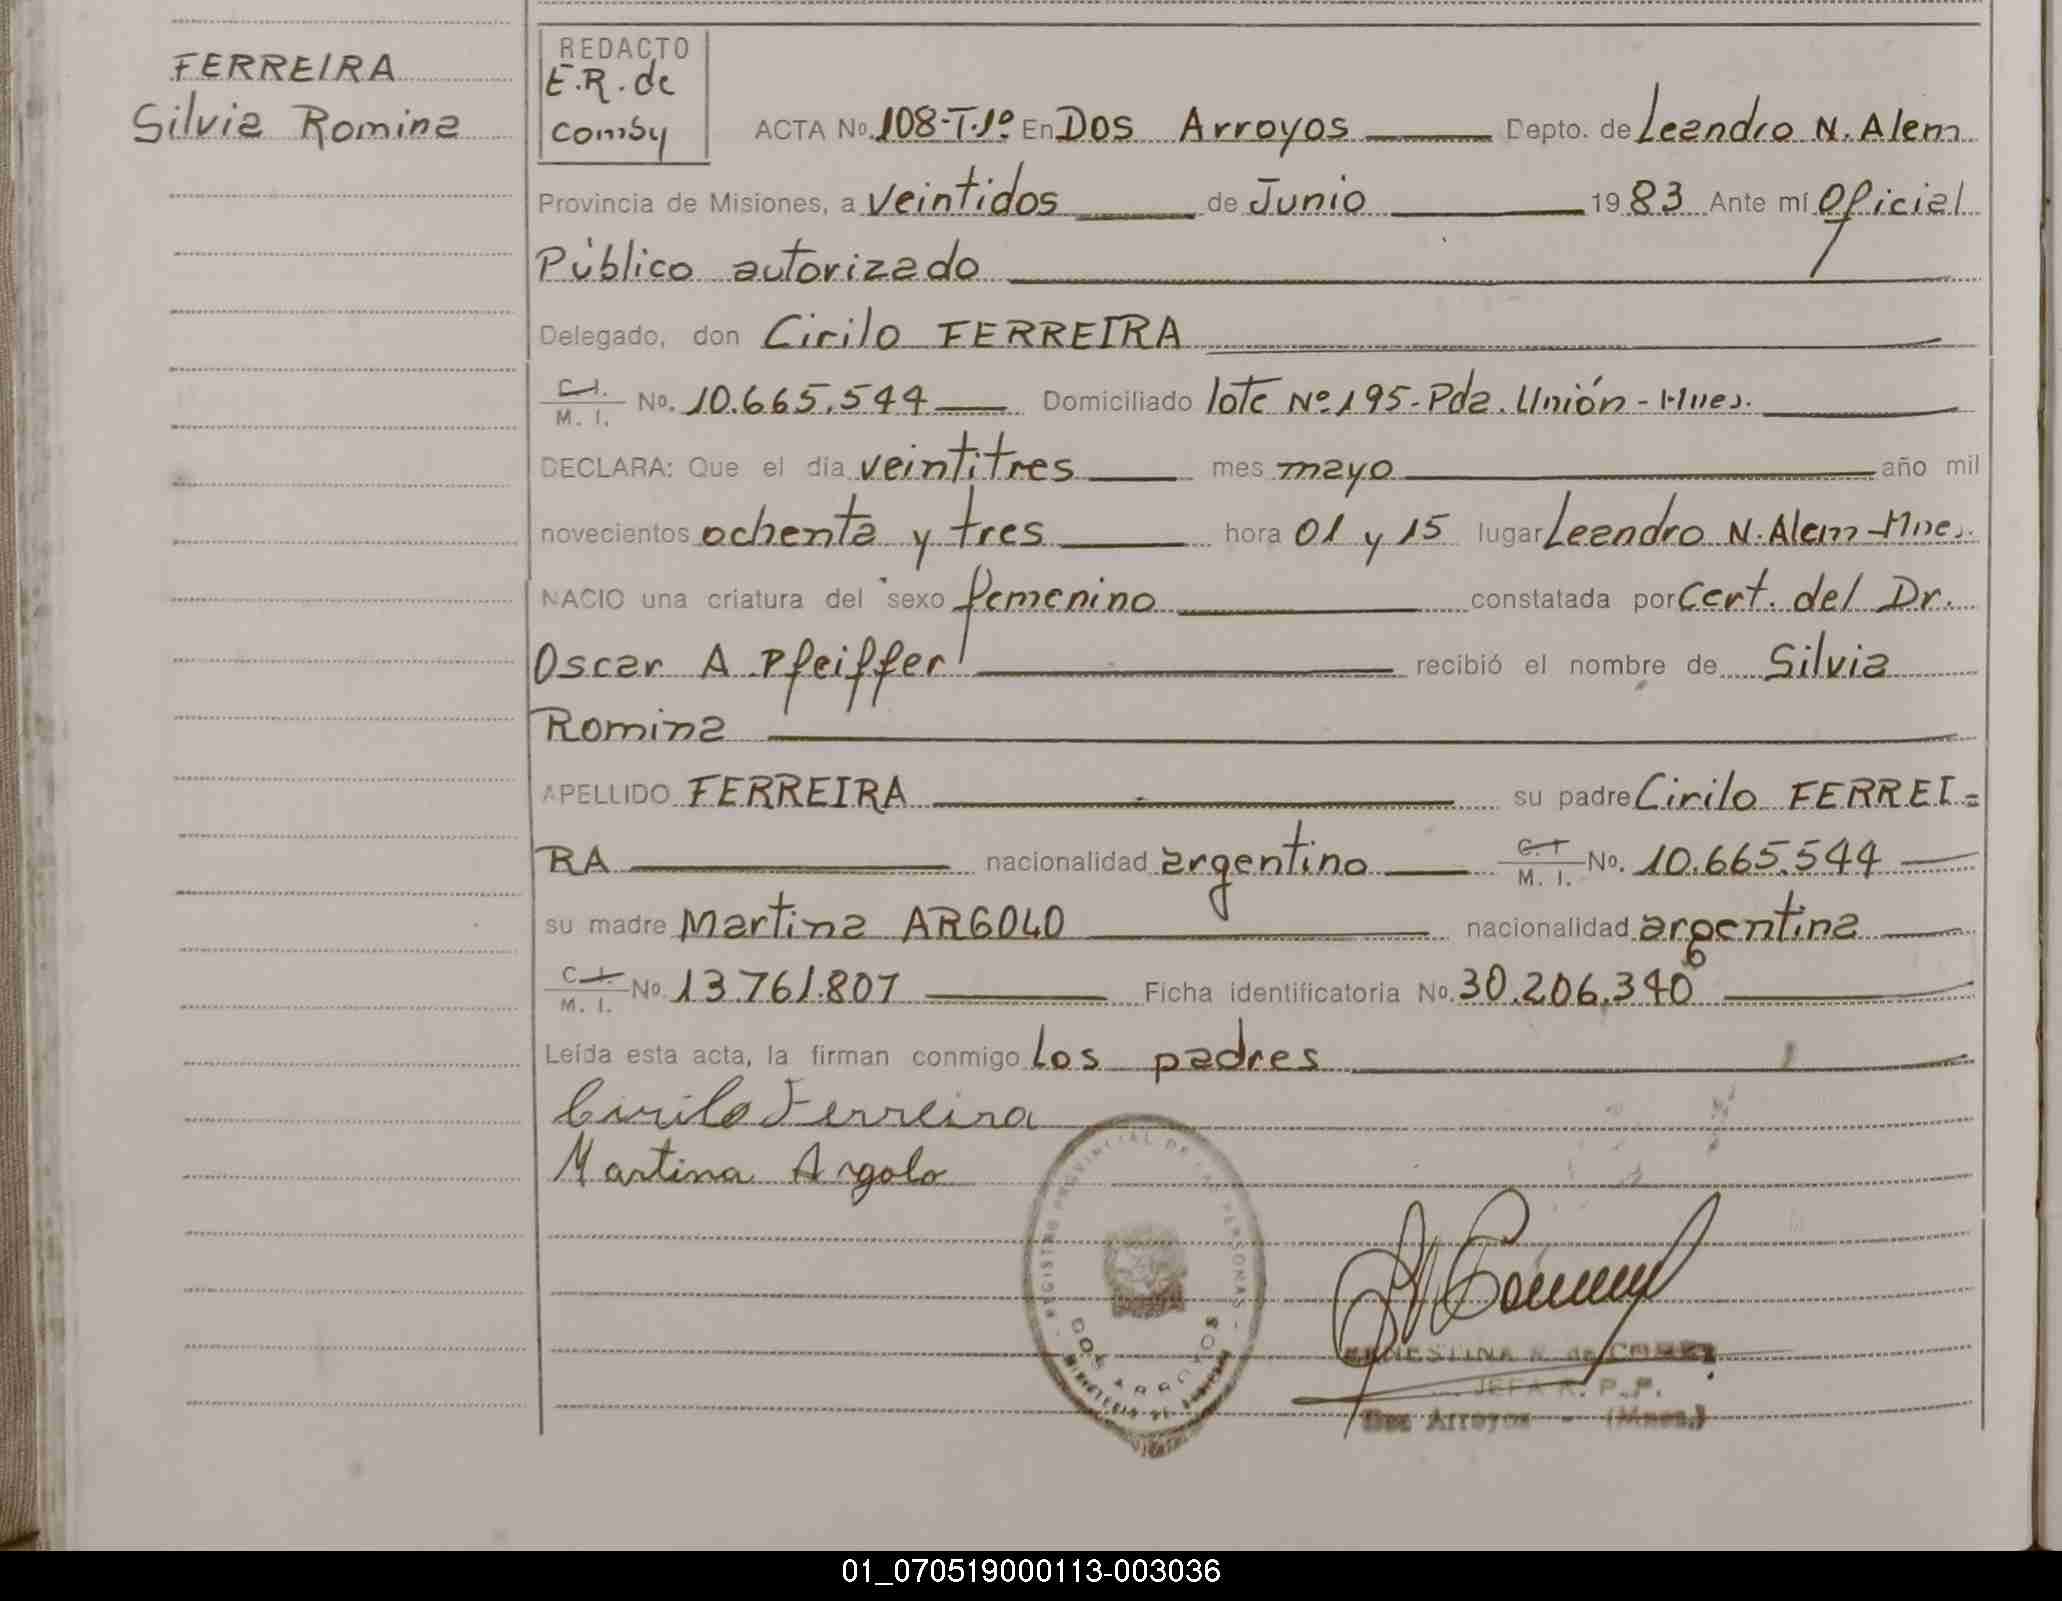 FERREIRA
Silvia Romina
REDACTO
E.R. de
comby
ACTA No. 108-T.1º En Dos Arroyos Depto. de Leandro N. Alem
Provincia de Misiones, a veintidos de Junio 1983 Ante mí Oficial
Público autorizado
Delegado, don Cirilo FERREIRA
C.I. M. I. No. 10.665.544 Domiciliado lote Nº 195-Pda. Unión - Mnes.
DECLARA: Que el día veintitres mes mayo año mil
novecientos ochenta y tres hora 01 y 15 lugar Leandro N. Alem-Mnes.
NACIO una criatura del sexo femenino constatada por Cert. del Dr.
Oscar A. Pfeiffer recibió el nombre de Silvia
Romina
APELLIDO FERREIRA su padre Cirilo FERREI=
RA nacionalidad argentino C.I. M. I. No. 10.665.544
su madre Martina ARGOLO nacionalidad argentina
C.I. M. I. No. 13.761.807 Ficha identificatoria No. 30.206.340
Leída esta acta, la firman conmigo los padres
Cirilo Ferreira
Martina Argolo
REGISTRO PROVINCIAL DE LAS PERSONAS
DOS ARROYOS
ERNESTINA R. de COMBY
JEFA R. P. P.
Dos Arroyos - (Mnes.)
01_070519000113-003036